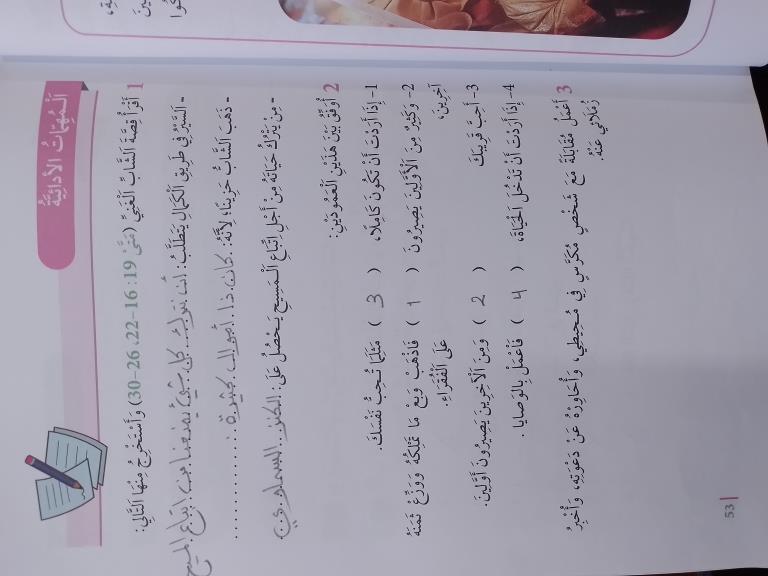 اَلْمُهِمّاتُ الأَدائِيَّةُ
1 أَقْرَأُ قِصَّةَ الشّابِّ الغَنِيِّ (مَتّى 19: 16-22، 26-30) وَأَسْتَخْرِجُ مِنْها التّالي:
- اَلسَّيْرُ في طَريقِ الكَمالِ يَتَطَلَّبُ: أن نترك كل شيئ يمنعنا من اتباع المسيح
- ذَهَبَ الشّابُّ حَزينًا؛ لِأَنَّهُ: كان ذا أموال كثيرة
- مِنْ يَتْرُكُ حَياتَهُ مِنْ أَجْلِ اِتِّباعِ الْمَسيحِ يَحْصُلُ عَلى: الكنز السماوي.
2 أُوَفِّقُ بَيْنَ هَذَيْنِ الْعَمودَيْنِ:
1- إِذا أَرَدْتَ أَنْ تَكونَ كامِلًا، ( 3 ) مِثْلَما تُحِبُّ نَفْسَكَ.
2- وَكَثيرٌ مِنَ الْأَوَّلينَ يَصيرونَ ( 1 ) فَاذْهَبْ وَبِعْ ما تَمْلِكُهُ وَوَزِّعْ ثَمَنَهُ
آخِرينَ، عَلى الْفُقَراءِ.
3- أَحِبَّ قَريبَكَ ( 2 ) وَمِنَ الْآخِرينَ يَصيرونَ أَوَّلينَ.
4- إِذا أَرَدْتَ أَنْ تَدْخُلَ الْحَياةَ، ( 4 ) فَاعْمَلْ بِالوَصايا.
3 أَعْمَلُ مُقابَلَةً مَعَ شَخْصٍ مُكَرَّسٍ في مُحيطي، وَأُحاوِرُهُ عَنْ دَعْوَتِهِ، وَأُخْبِرُ
زُمَلائي عَنْهُ.
53